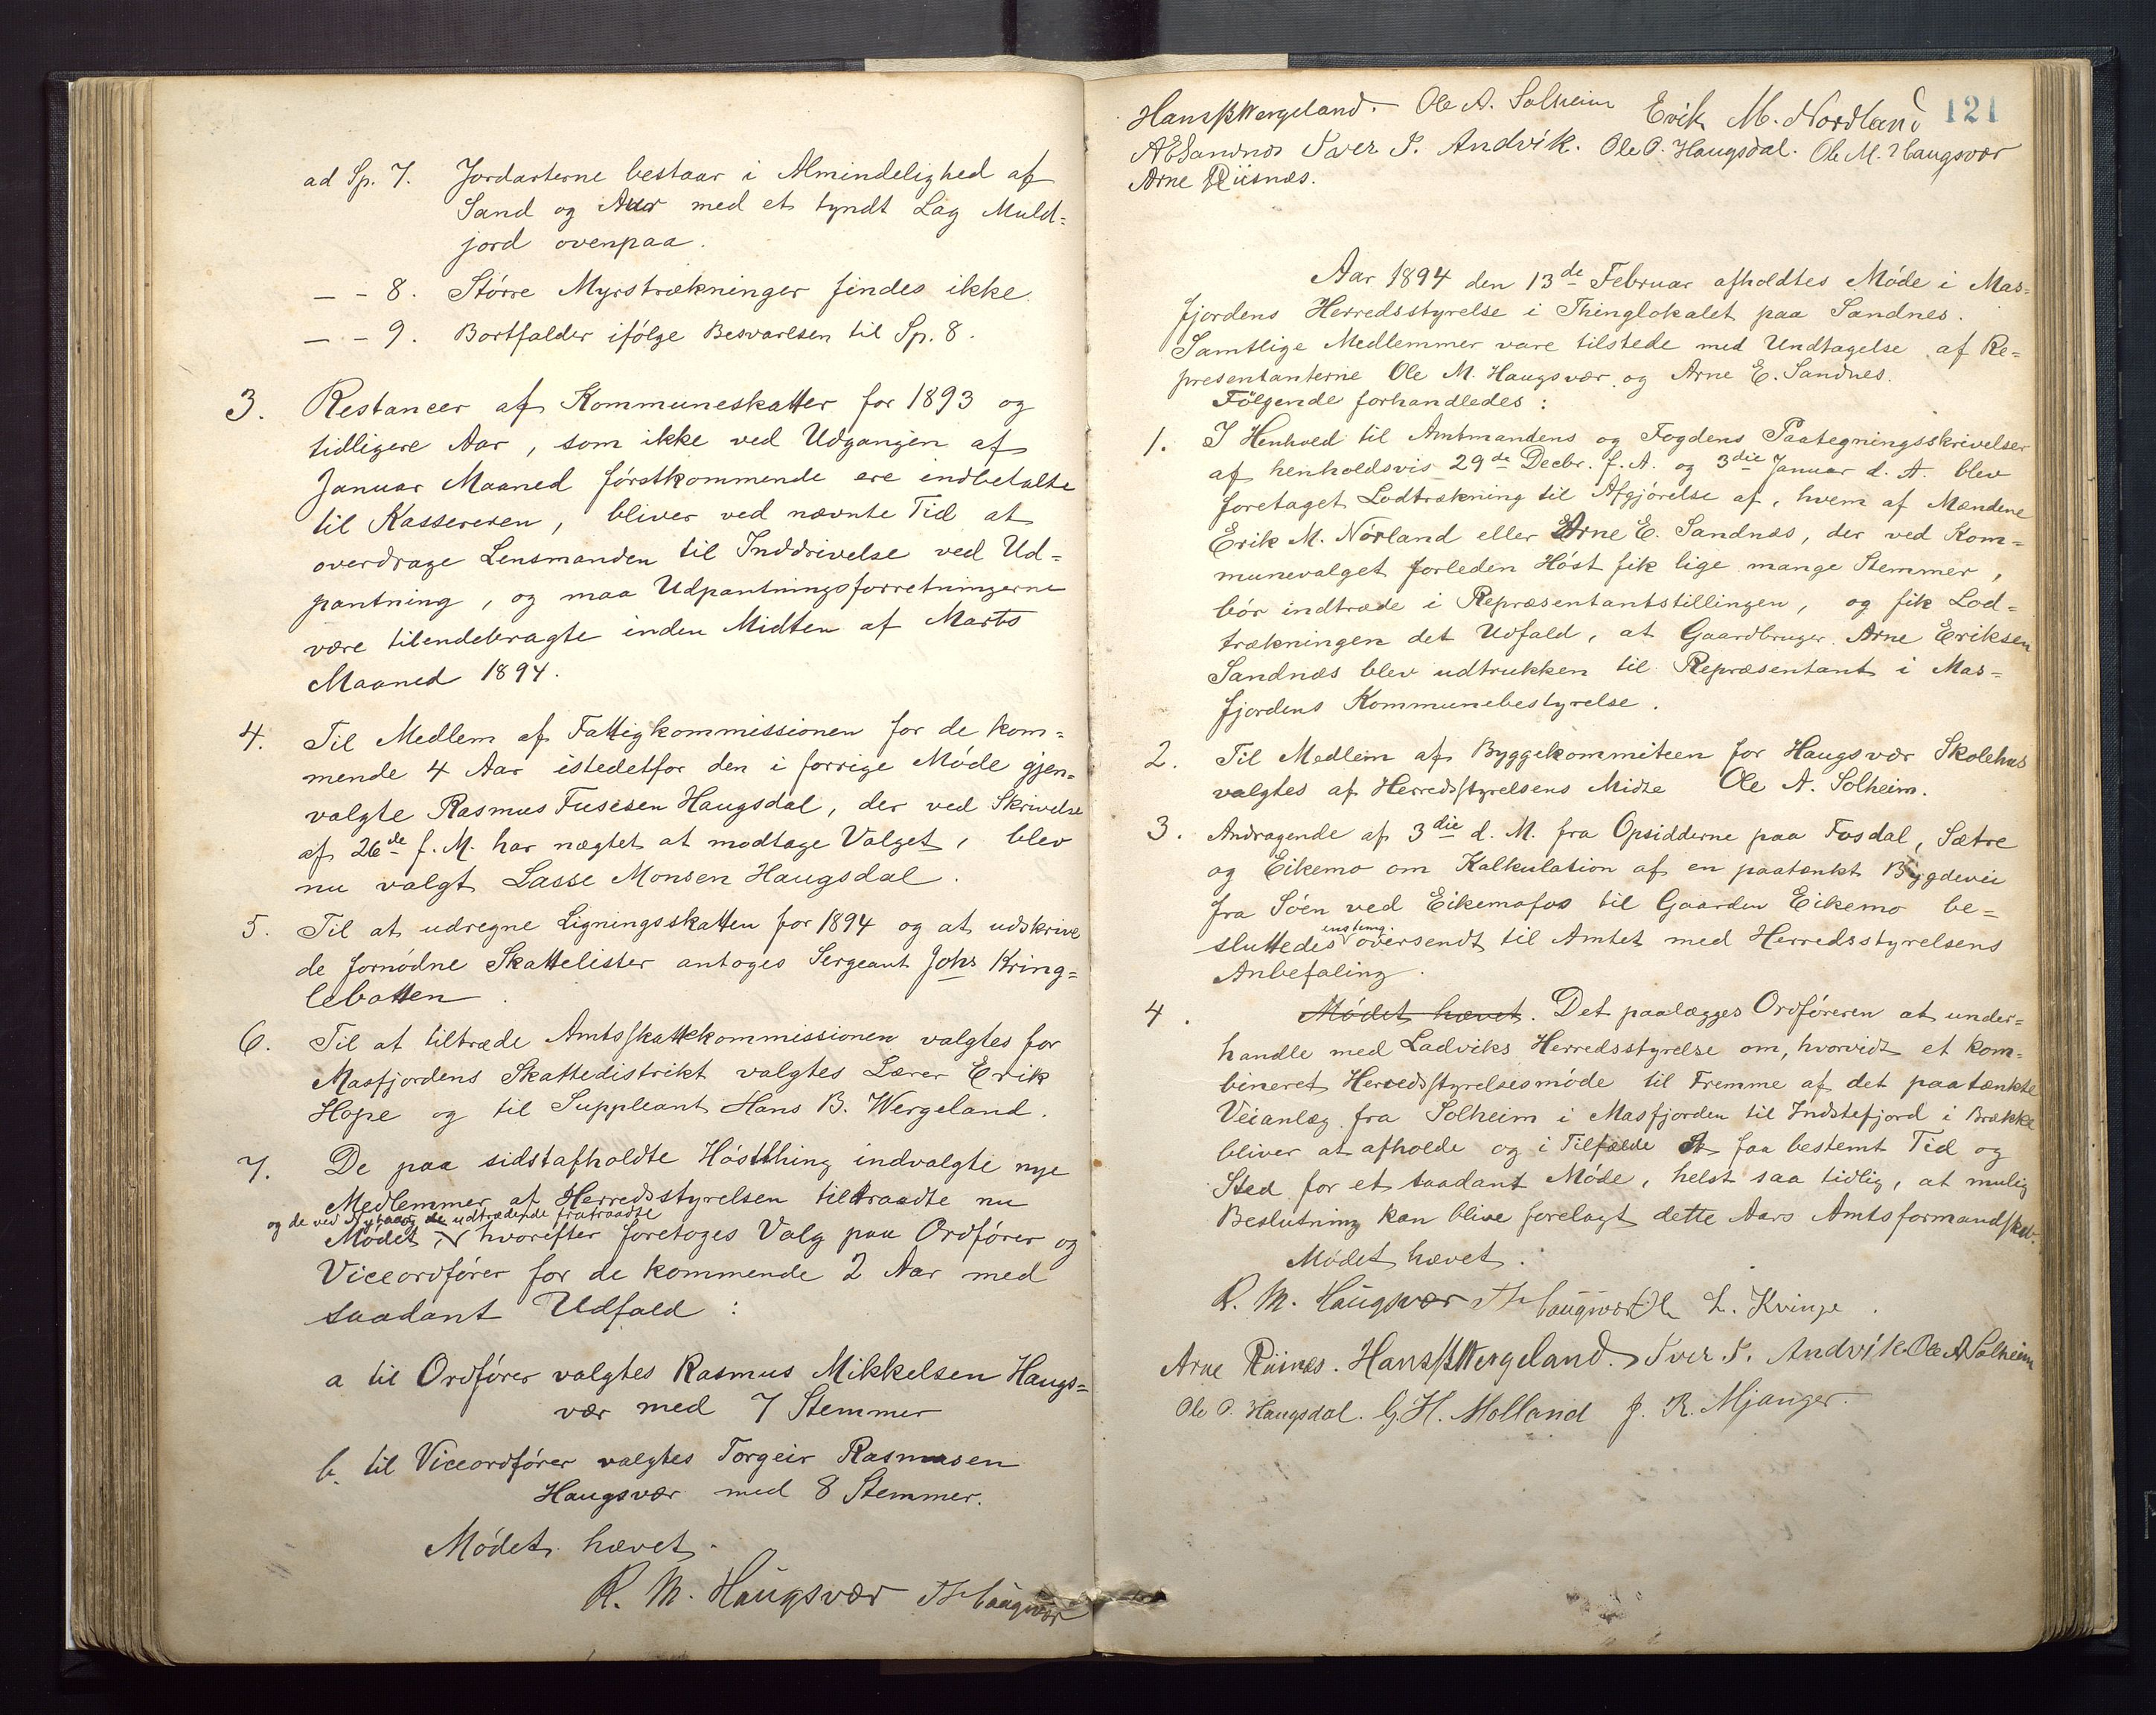 ad Sp. 7. Jordarterne bestaar i Almindelighed af
Sand og Aur med et tyndt Lag Muld=
jord ovenpaa.
— - 8. Större Myrstrækninger findes ikke.
— - 9. Bortfalder ifölge Besvarelsen til Sp. 8.
3. Restancer af Kommuneskatter for 1893 og
tidligere Aar, som ikke ved Udgangen af
Januar Maaned förstkommende ere indbetalte
til Kassereren, bliver ved nævnte Tid at
overdrage Lensmanden til Inddrivelse ved Ud=
pantning, og maa Udpantningsforretningerne
være tilendebragte inden Midten af Marts
Maaned 1894.
4. Til Medlem af Fattigkommissionen for de kom=
mende 4 Aar istedetfor den i forrige Möde gjen=
valgte Rasmus Fusesen Haugsdal, der ved Skrivelse
af 26de f. M. har nægtet at modtage Valget, blev
nu valgt Lasse Monsen Haugsdal.
5. Til at udregne Ligningsskatten for 1894 og at udskrive
de fornödne Skattelister antoges Sergeant Johs Kring=
lebotten.
6. Til at tiltræde Amtsskattekommissionen valgtes for
Masfjordens Skattedistrikt valgtes Lærer Erik
Hope og til Suppleant Hans B. Wergeland.
7. De paa sidstafholdte Hösthing indvalgte nye
Medlemmer af Herredsstyrelsen tiltraadte nu
og de ved Nytaar de udtrædende fratraadte
Mödet, hvorefter foretoges Valg paa Ordförer og
Viceordförer for de kommende 2 Aar med
saadant Udfald:
a til Ordförer valgtes Rasmus Mikkelsen Haugs=
vær med 7 Stemmer
b. til Viceordförer valgtes Torgeir Rasmusen
Haugsvær med 8 Stemmer.
Mödet hævet.
R. M. Haugsvær T Haugsvær
121
Hans B Wergeland. Ole A. Solheim Erik M. Nordland
AESandnes Iver P. Andvik. Ole O. Haugsdal. Ole M. Haugsvær
Arne Riisnæs.
Aar 1894 den 13de Februar afholdtes Möde i Mas=
fjordens Herredsstyrelse i Thinglokalet paa Sandnes.
Samtlige Medlemmer vare tilstede med Undtagelse af Re=
presentanterne Ole M. Haugsvær og Arne E. Sandnes.
Fölgende forhandledes:
1. I Henhold til Amtmandens og Fogdens Paategningsskrivelser
af henholdsvis 29de Decbr. f. A. og 3die Januar d. A. blev
foretaget Lodtrækning til Afgjörelse af, hvem af Mændene
Erik M. Nörland eller Arne E. Sandnæs, der ved Kom=
munevalget forleden Höst fik lige mange Stemmer,
bör indtræde i Repræsentantstillingen, og fik Lod=
trækningen det Udfald, at Gaardbruger Arne Eriksen
Sandnæs blev udtrukken til Repræsentant i Mas=
fjordens Kommunebestyrelse.
2. Til Medlem af Byggekommiteen for Haugsvær Skolehus
valgtes af Herredsstyrelsens Midte Ole A. Solheim.
3. Andragende af 3die d. M. fra Opsidderne paa Fosdal, Sætre
og Eikemo om Kalkulation af en paatænkt Bygdevei
fra Söen ved Eikemofos til Gaarden Eikemo be=
enstemg.
sluttedes oversendt til Amtet med Herredsstyrelsens
Anbefaling.
4. Mödet hævet. Det paalægges Ordföreren at under=
handle med Ladviks Herredsstyrelse om, hvorvidt et kom=
bineret Herredsstyrelsesmöde til Fremme af det paatænkte
Veianlæg fra Solheim i Masfjorden til Indstefjord i Brække
bliver at afholde og i Tilfælde at faa bestemt Tid og
Sted for et saadant Möde, helst saa tidlig, at mulig
Beslutning kan blive forelagt dette Aars Amtsformandskab.
Mödet hævet.
R. M. Haugsvær T Haugsvær Ole L. Kvinge.
Arne Riisnes. Hans B Wergeland. Iver P. Andvik. Ole A Solheim
Ole O. Haugsdal. G. H. Molland J. R. Mjanger.